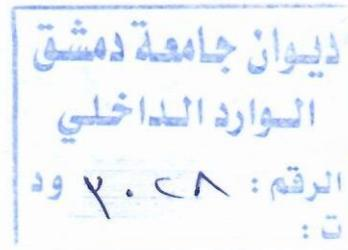 ديوان جامعة دمشق
الوارد الداخلي
الرقم : ٣٠٢٨ ود
ت :